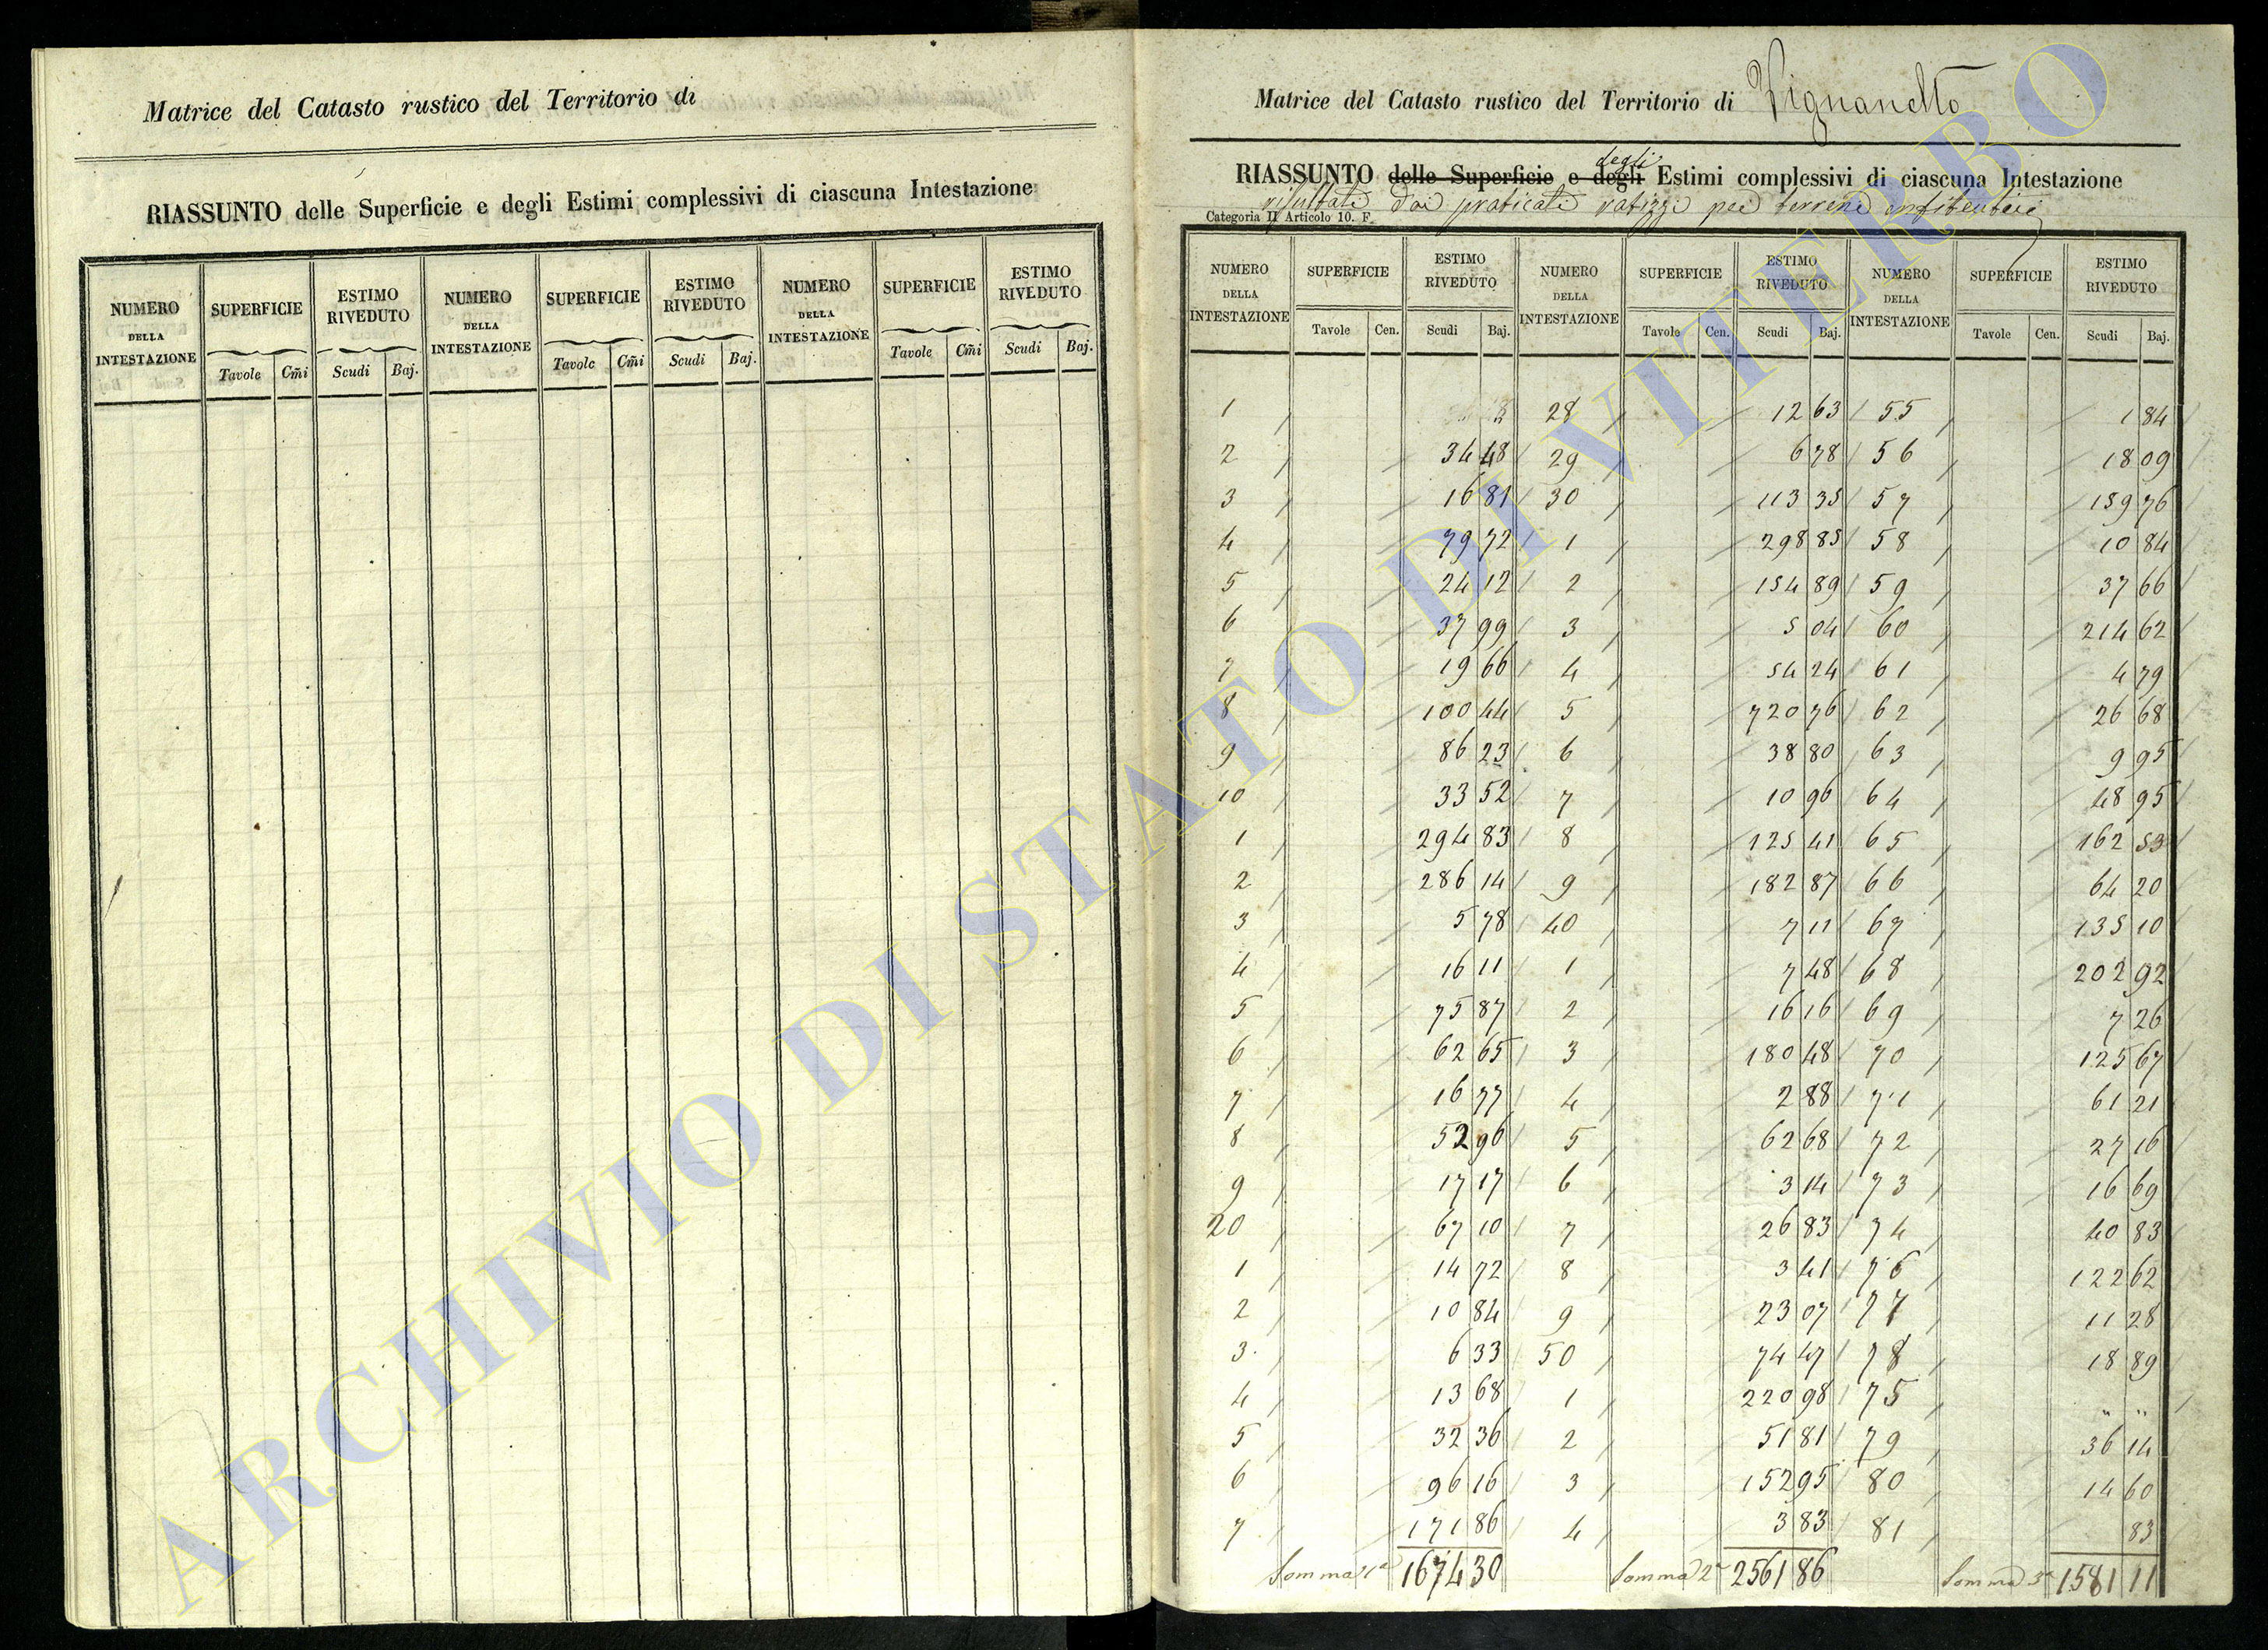 Matrice del Catasto rustico del Territorio di
RIASSUNTO delle Superficie e degli Estimi complessivi di ciascuna Intestazione
NUMERO DELLA INTESTAZIONE SUPERFICIE ESTIMO RIVEDUTO NUMERO DELLA INTESTAZIONE SUPERFICIE ESTIMO RIVEDUTO NUMERO DELLA INTESTAZIONE SUPERFICIE ESTIMO RIVEDUTO
Tavole Cm̃i Scudi Baj. Tavole Cm̃i Scudi Baj. Tavole Cm̃i Scudi Baj.
Matrice del Catasto rustico del Territorio di Vignanello
degli
RIASSUNTO delle Superficie e degli Estimi complessivi di ciascuna Intestazione
risultati dai praticati ratizzi per terreni enfiteutici
Categoria II Articolo 10. F.
NUMERO DELLA INTESTAZIONE SUPERFICIE ESTIMO RIVEDUTO NUMERO DELLA INTESTAZIONE SUPERFICIE ESTIMO RIVEDUTO NUMERO DELLA INTESTAZIONE SUPERFICIE ESTIMO RIVEDUTO
Tavole Cen. Scudi Baj. Tavole Cen. Scudi Baj. Tavole Cen. Scudi Baj.
1 28 12 63 55 1 84
2 34 48 29 6 78 56 18 09
3 16 81 30 113 35 57 159 76
4 79 72 1 298 85 58 10 84
5 24 12 2 154 89 59 37 66
6 37 99 3 5 04 60 214 62
7 19 66 4 54 24 61 4 79
8 100 44 5 720 76 62 26 68
9 86 23 6 38 80 63 9 95
10 33 52 7 10 96 64 48 95
1 294 83 8 125 41 65 162 53
2 286 14 9 182 87 66 64 20
3 5 78 40 7 11 67 135 10
4 16 11 1 7 48 68 202 92
5 75 87 2 16 16 69 7 26
6 62 65 3 180 48 70 125 67
7 16 77 4 2 88 71 61 21
8 52 96 5 62 68 72 27 16
9 17 17 6 3 14 73 16 69
20 67 10 7 26 83 74 40 83
1 14 72 8 3 41 76 122 62
2 10 84 9 23 07 77 11 28
3 6 33 50 74 47 78 18 89
4 13 68 1 220 98 75 " "
5 32 36 2 51 81 79 36 14
6 96 16 3 152 95 80 14 60
7 171 86 4 3 83 81 83
Somma 1ª 1674 30 Somma 2ª 2561 86 Somma 3ª 1581 11
ARCHIVIO DI STATO DI VITERBO